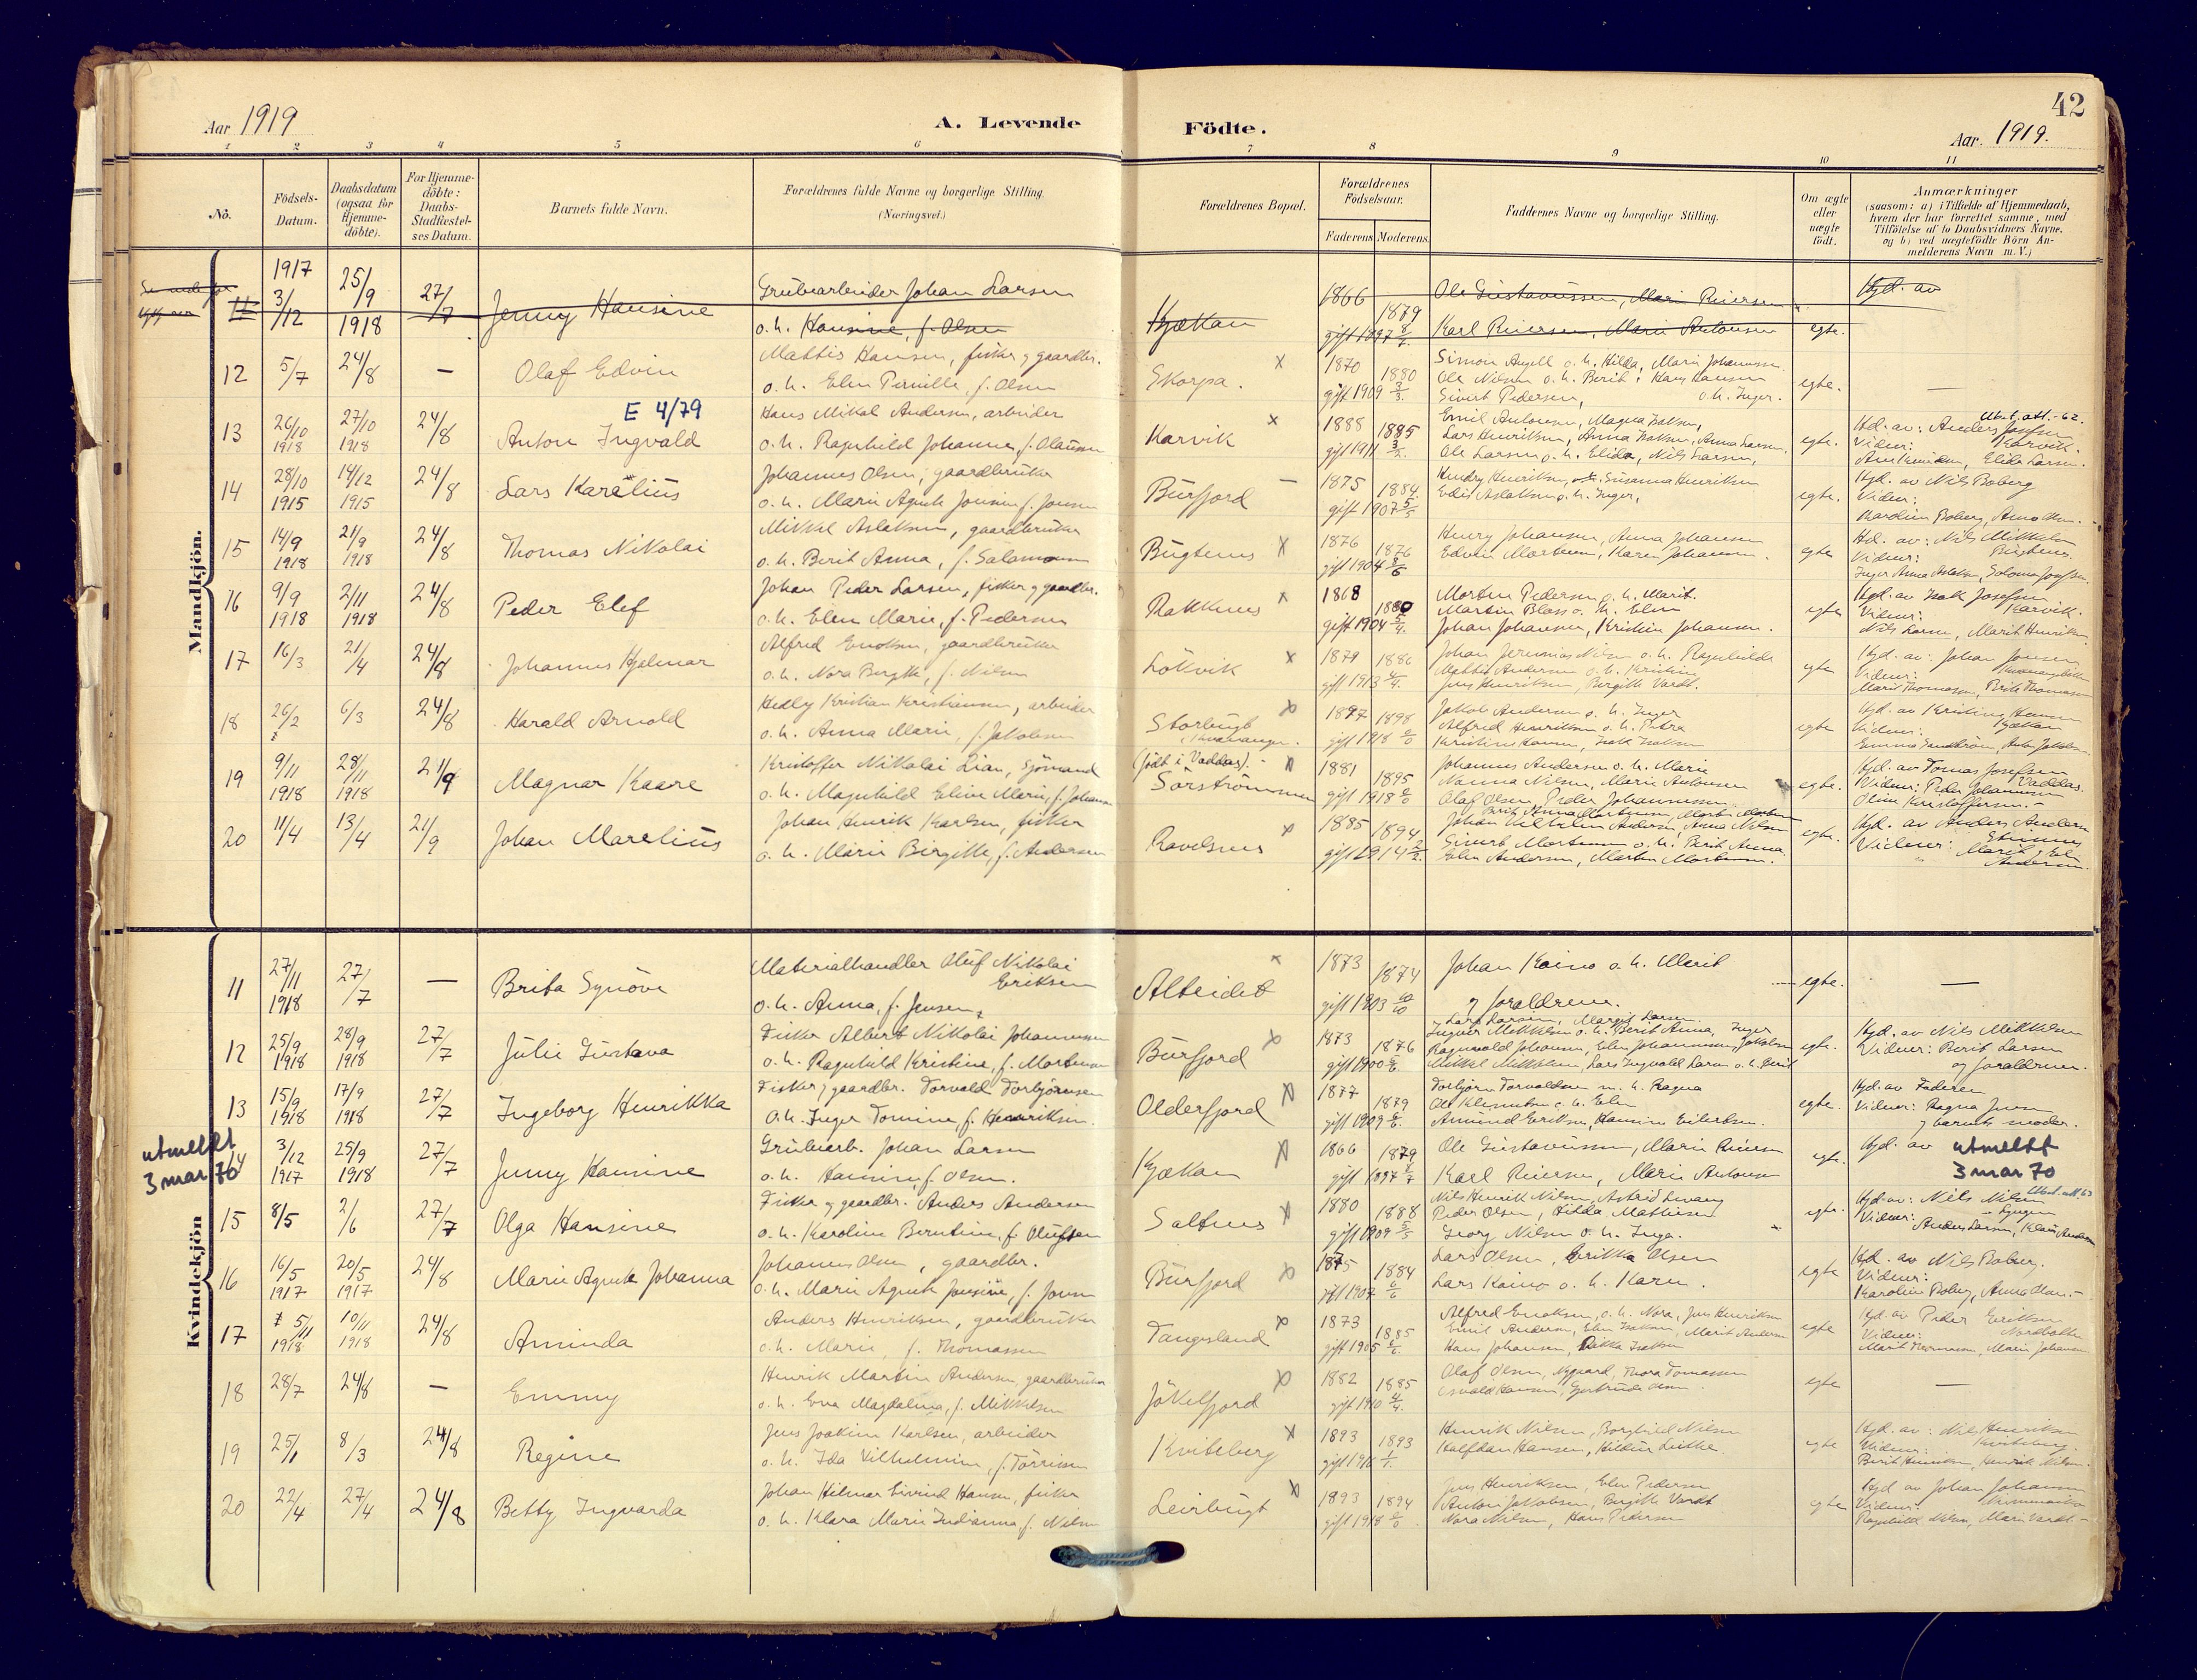 42
Aar 1919
A. Levende
Födte.
Aar 1919.
1 2 3 4 5 6 7 8 9 10 11
No.
Födsels-Datum.
Daabsdatum (ogsaa for Hjemme-döbte).
For Hjemme-döbte: Daabs-Stadfæstel-ses Datum.
Barnets fulde Navn.
Forældrenes fulde Navne og borgerlige Stilling.
(Næringsvei.)
Forældrenes Bopæl.
Forældrenes Födselsaar.
Faderens Moderens
Faddernes Navne og borgerlige Stilling.
Om ægte eller uægte födt.
Anmærkninger
(saasom: a) i Tilfælde af Hjemmedaab,
hvem der har forrettet samme, med
Tilföielse af to Daabsvidners Navne.
og b) ved uægtefödte Börn An-
melderens Navn m. V.)
Mandkjön.
11 1917 3/12 25/9 1918 27/7 Jenny Hansine
Grubearbeider Johan Larsen
o. h. Hansine, f. Olsen
Kjækan 1866 1879
Ole Gustavussen, Marie Reiersen
Karl Reiersen, Marie Antonsen
egte. Hjd. av
12 5/7 24/8 — Olaf Edvin
Mattis Hansen, fisker g gaardbr.
o. h. Elen Pernille, f. Olsen
Skorpa. x 1870 1880 gift 1909 3/3.
Simon Angell o. h. Hilda, Marie Johannessen
Ole Nilsen o. h. Berit, Hans Hansen
Sivert Pedersen, o. h. Inger.
egte. —
E 4/79
13 26/10 1918 27/10 1918 24/8 Anton Ingvald
Hans Mikal Andersen, arbeider
o. h. Ragnhild Johanne, f. Olaussen
Karvik x 1888 1885 gift 1911 3/2.
Emil Antonsen, Magna Isaksen,
Lars Henriksen, Anna Isaksen, Anna Larsen
Ole Larsen o. h. Elida, Nils Larsen,
egte. Utst. att. - 62.
Hd. av: Anders Josefsen
Karvik.
Vidner:
Elida Larsen.
14 28/10 1915 14/12 1915 24/8 Lars Karelius
Johannes Olsen, gaardbruker
o. h. Marie Agnete Jonsine f. Jonsen
Burfjord — 1875 1884. gift 1907 5/5
Henry Henriksen, Susanna Henriksen
Edis Aslaksen o. h. Inger,
egte. Hjd. av Nils Boberg
Vidner:
Karoline Boberg, Arne Olsen.
15 14/9 1918 21/9 1918 24/8 Thomas Nikolai
Mikkel Aslaksen, gaardbruker
o. h. Berit Anna, f. Salamonsen
Bugtenes x 1876 1876 gift 1904 8/6
Henry Johansen, Anna Johansen
Edvin Mortensen, Karen Johansen.
egte Hd. av: Nils Mikkelsen
Bugtenes
Vidner:
Inger Anna Aslaksen, Salomon Josefsen
16 9/9 1918 2/11 1918 24/8 Peder Elef
Johan Peder Larsen, fisker g gaardbr.
o. h. Elen Marie, f. Pedersen
Rakkenes x 1868 1880 gift 1904 5/4.
Morten Pedersen o. h. Marit.
Martin Blass o. h. Elen
Johan Johansen, Kristine Johansen.
egte Hjd. av Isak Josefsen
Karvik.
Vidner:
Nils Larsen, Marit Henriksen
17 16/3 21/4 24/8 Johannes Hjelmar
Alfred Enoksen, gaardbruker
o. h. Nora Bergitte, f. Nilsen
Lökvik x 1879 1886 gift 1913 4/4.
Johan Jeremias Nilsen o. h. Ragnhilde
Mattis Andersen o. h. Kristine
Jens Henriksen, Birgitte Vardt.
egte Hjd. av: Johan Jonsen
Vidner:
Marit Thomassen, Berit Thomassen
18 26/2 6/3 24/8 Harald Arnold
Hedly Kristian Kristiansen, arbeider
o. h. Anna Marie, f. Jakobsen
Storbugt
Kvænangen. x 1897 1898 gift 1918
Jakob Andersen o. h. Inger
Alfred Henriksen o. h. Petra
Kristine Hansen, Isak Isaksen
egte Hjd. av Kristine Hansen
Kjækan
Vidner:
19 9/11 1918 28/11 1918 21/9 Magnar Kaare
Kristoffer Nikolai Lian, Sjömand
o. h. Magnhild Eline Marie, f. Johansen
(födt i Vaddas). -
Sörströmmen 1881 1895 gift 1918
Johannes Andersen o. h. Marie
Nanna Nilsen, Marie Antonsen
Olaf Olsen, Peder Johannessen
egte. Hjd. av Tomas Josefsen
Vaddas.
Vidner: Peder Johannessen
Oline Kristoffersen. -
20 11/4 13/4 21/9 Johan Marelius
Johan Henrik Karlsen, fisker
o. h. Marie Birgitte, f. Andersen
Ravelsnes x 1885 1894 gift 1914 2/2.
Berit Anna Mortensen, Martin Mortensen
Johan Vilhelm Andersen, Anna Nilsen
Sivert Mortensen o. h. Berit Anna.
Elen Andersen, Martin Mortensen.
egte. Hjd. av Anders Andersen
Vidner: Marit, Elen
Andersen.
Kvindekjön
11 27/11 1918 27/7 — Brita Synöve
Materialhandler Oluf Nikolai
Eriksen
o. h. Anna, f. Jensen
Alteidet x 1873 1874 gift 1903 10/10
Johan Kaino o. h. Marit
g foraldrene.
egte. —
12 25/9 1918 28/9 1918 27/7 Julie Gustava
Fisker Albert Nikolai Johannessen
o. h. Ragnhild Kristine, f. Mortensen
Burfjord x 1873 1876 gift 1900 6/6.
Lars Larsen, Margit Larsen.
Ingver Mikkelsen o. h. Berit Anna, Inger
Ragnvald Johansen, Elen Johannessen, Jakobsen
Mikkel Mikkelsen, Lars Ingvald Larsen o. h. Berit
egte. Hjd. av Nils Mikkelsen
Vidner: Berit Larsen
og foraldrene.
13 15/9 1918 17/9 1918 27/7 Ingeborg Henrikka
Fisker g gaardbr. Torvald Torbjörnsen
o. h. Inger Tomine, f. Henriksen.
Olderfjord x 1877 1879 gift 1909 6/6.
Torbjörn Torvaldsen m. h. Ragna
Ole Klemetsen o. h. Elen
Amund Eriksen, Hansine Eilertsen.
egte. Hjd. av Faderen
Vidner: Ragna Jensen
g barnets moder.
utmeldt
3 mar 70
14 3/12 1917 25/9 1918 27/7 Jenny Hansine
Grubearb. Johan Larsen
o. h. Hansine, f. Olsen.
Kjækan x 1866 1879 gift 1897
Ole Gustavussen, Marie Reiersen
Karl Reiersen, Marie Antonsen
egte. Hjd. av utmeldt
3 mar 70
15 8/5 2/6 27/7 Olga Hansine
Fisker g gaardbr. Anders Andersen
o. h. Karoline Berntine, f. Olufsen
Saltnes x 1880 1888 gift 1909 5/5
Nils Henrik Nilsen, Astrid Levang
Peder Olsen, Hilda Mathiesen
Georg Nilsen o. h. Inga.
egte. Utst. att 63
Hjd. av: Nils Nilsen
Lyngen
Vidner: Anders Larsen, Klaus Andersen
16 16/5 1917 20/5 1917 24/8 Marie Agnete Johanna
Johannes Olsen, gaardbr.
o. h. Marie Agnete Jonsine, f. Jonsen
Burfjord x 1875 1884 gift 1907 6/6
Lars Olsen, Erikka Olsen
Lars Kaino o. h. Karen.
egte Hd. av Nils Boberg.
Vidner:
Karoline Boberg, Anna Olsen. -
17 5/11 1918 10/11 1918 24/8 Aminda
Anders Henriksen, gaardbruker
o. h. Marie, f. Thomassen
Tangesland x 1873 1885 gift 1905 6/6.
Alfred Enoksen, o. h. Nora, Jens Henriksen
Emil Andersen, Elen Isaksen, Marit Andersen
Hans Johansen, Rikka Isaksen
egte Hjd. av Peder Eriksen
Nordbotten
Vidner:
Marit Thomassen, Marie Johansen
18 28/7 24/8 — Emmy
Henrik Martin Andersen, gaardbruker
o. h. Eva Magdalena, f. Mikkelsen
Jökelfjord x 1882 1885 gift 1910 4/4.
Olaf Olsen, Nygaard, Thora Tomassen
Osvald Hansen, Gjertrude Olsen.
egte —
19 25/1 8/3 24/8 Regine
Jens Joakim Karlsen, arbeider
o. h. Ida Vilhelmine, f. Törrissen
Kvitberg x 1893 1893 gift 1916 1/1.
Henrik Nilsen, Borghild Nilsen
Halfdan Hansen, Hildur Lutke.
egte Hjd. av: Nils Henriksen
Kvitberg.
Vidner:
Berit Henriksen, Henrik Nilsen.
20 22/4 27/4 24/8 Betty Ingvarda
Johan Hilmar Eivind Hansen, fisker
o. h. Klara Marie Indianna f. Nilsen
Leirbugt x 1893 1894 gift 1918
Jens Henriksen, Elen Pedersen
Anton Jakobsen, Birgitte Vardt
Nora Nilsen, Hans Pedersen
egte Hjd av Johan Johansen
Vidner:
Ragnhild Nilsen, Marie Vardt. -